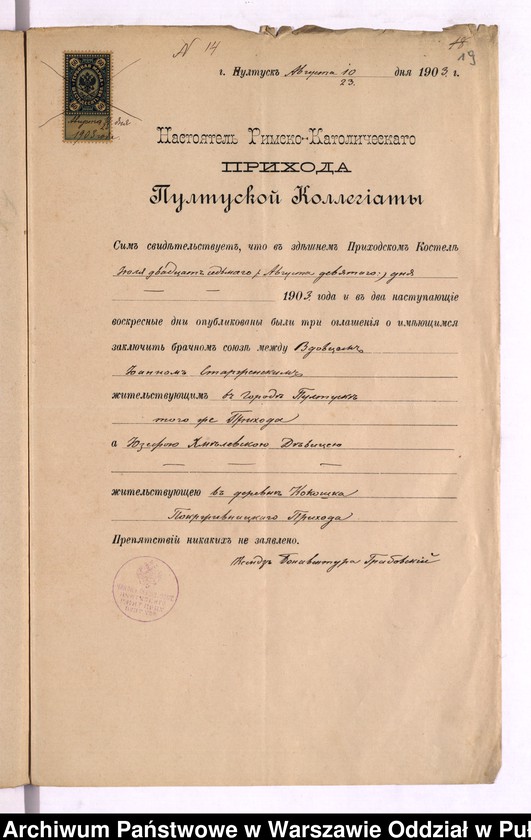 N 14
19
г. Пултускъ Августа 10/23 дня 1903 г.
Августа
1903 года
Настоятель Римско-Католическаго
ПРИХОДА
Пултуской Коллегіаты
Симъ свидѣтельствуетъ, что въ здѣшнемъ Приходскомъ Костелѣ
Іюля двадцать седьмаго (Августа девятого:) дня
1903 года и въ два наступающіе
воскресные дни опубликованы были три оглашенія о имѣющимся
заключить брачномъ союзѣ между Вдовцемъ
Яномъ
жительствующимъ въ городѣ Пултускѣ
того же Прихода
а Юзефою Хмѣлевскою Дѣвицею
жительствующею въ деревнѣ Кокошка
Прихода
Препятствій никакихъ не заявлено.
Ксендзъ Бонавентура Грабовскій
Archiwum Państwowe w Warszawie Oddział w Puł